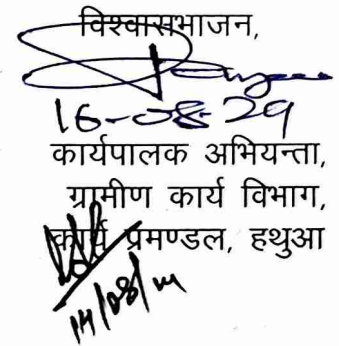 विश्वासभाजन,
16-08-24
कार्यपालक अभियन्ता,
ग्रामीण कार्य विभाग,
कार्य प्रमण्डल, हथुआ